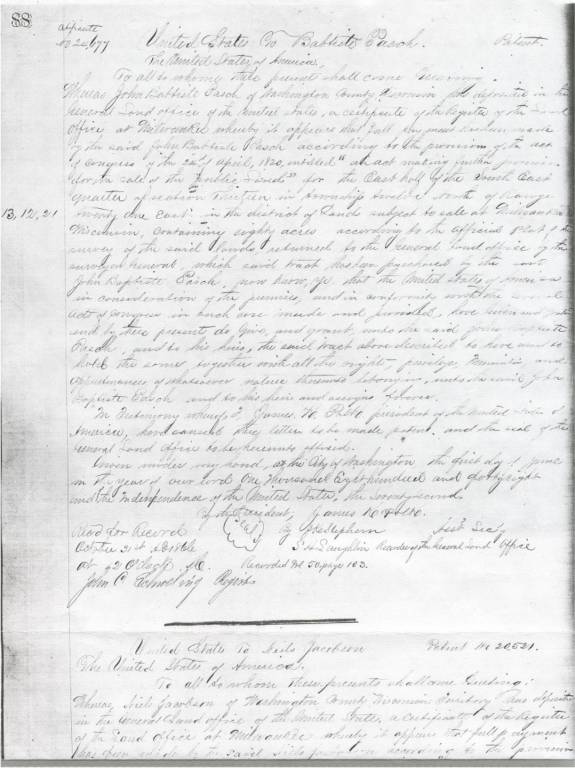 88
No 20,677
United States To Baptiste Pasch. Patent.
The United States of America,
To all to whom these presents shall come Greeting.
Whereas John Baptiste Pasch of Washington County Wisconsin has deposited in the
General Land office of the United States, a certificate of the Register of the Land
Office, at Milwaukee whereby it appears that full payment has been made
by the said John Baptiste Pasch according to the provisions of the act
of Congress of the 24th April, 1820, entitled "an act making further provision
for the sale of the Public Lands" for the East half of the South East
quarter of section thirteen in township twelve North of Range
13, 12, 21
twenty one East. in the district of Lands subject to sale at Milwaukee
Wisconsin, containing eighty acres according to the official Plat of the
survey of the said lands, returned to the General Land office by the
surveyor General, which said tract has been purchased by the said
John Baptiste Pasch, now know ye, that the United States of America
in consideration of the premises, and in conformity with the several
acts of Congress in such case made and provided, have given and granted
and by these present do give and grant, unto the said John Baptiste
Pasch, and to his heirs, the said tract above described to have and to
hold the same, together with all the rights, privileges, immunities and
appurtenances of whatsoever nature thereunto belonging, unto the said John
Baptiste Pasch and to his heirs and assigns forever.
In Testimony whereof I, James K. Polk president of the United States of
America, have caused these letters to be made patent, and the seal of the
General Land Office to be hereunto affixed.
Given under my hand, at the City of Washington the first day of June
in the year of our Lord One thousand Eight hundred and forty eight
and the Independence of the United States, the seventy second.
By the President, James K Polk.
Recd for Record By J K Stephens Asst Secy
October 21st AD 1848 S H Laughlin Recorder of the General Land Office
at 2 O'clock Recorded Vol 50, page 103.
John C Schmeling Register
United States To Neils Jacobson Patent No 20,521.
The United States of America.
To all to whom these presents shall come Greeting:
Whereas Niels Jacobson of Washington County Wisconsin Territory has deposited
in the General Land office of the United States, a certificate of the Register
of the Land Office at Milwaukee whereby it appears that full payment
has been made by the said Niels Jacobson according to the provisions